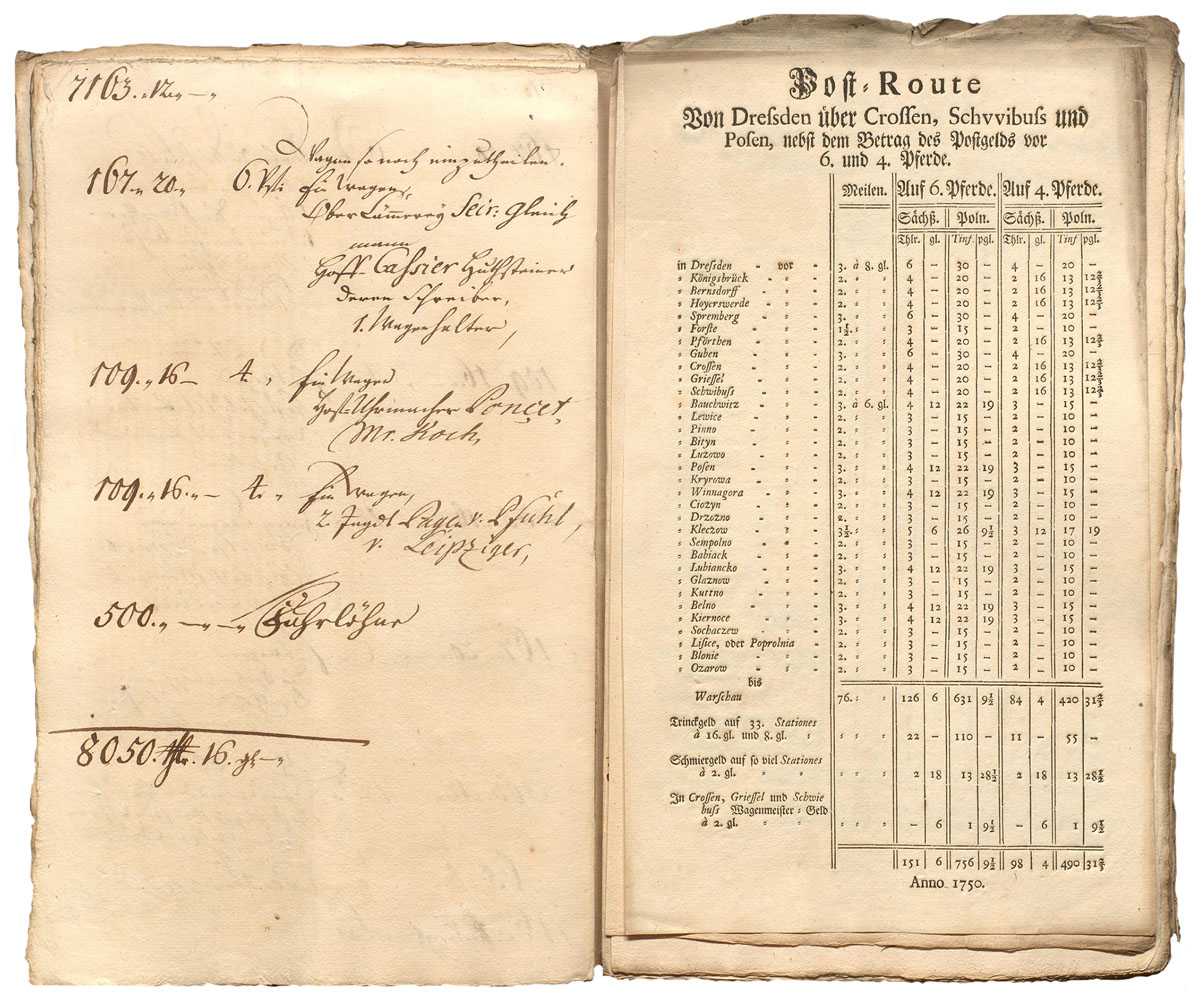 7163. 12. —
Wagen so noch einzutheilen.
167. 20. 6. Pf: Ein Wagen,
Ober Cämmerey Secr: Gleich
mann
Hoff Cassier Huthsteiner
deren Schreiber,
1. Wagenhalter,
109. 16 — 4. Ein Wagen
Hof-Uhrmacher Poncet,
Mr. Koch,
109. 16. — 4. Ein Wagen,
2. Jagdt Pagen v. Pfuhl,
v. Leipziger,
500. — — Fuhrlöhne
8050. thlr. 16. gl —
Post-Route
Von Dreſsden über Croſſen, Schvvibuſs und
Poſen, nebſt dem Betrag des Poſtgelds vor
6. und 4. Pferde.
Meilen. Auf 6. Pferde. Auf 4. Pferde.
Sächß. Poln. Sächß. Poln.
Thlr. gl. Tinf. pgl. Thlr. gl. Tinf pgl.
in Dreſsden - vor - 3. à 8. gl. 6 – 30 – 4 – 20 –
⸗ Königsbrück - ⸗ - 2. ⸗ ⸗ 4 – 20 – 2 16 13 12⅔
⸗ Bernsdorff - ⸗ - 2. ⸗ ⸗ 4 – 20 – 2 16 13 12⅔
⸗ Hoyerswerde - ⸗ - 2. ⸗ ⸗ 4 – 20 – 2 16 13 12⅔
⸗ Spremberg - ⸗ - 3. ⸗ ⸗ 6 – 30 – 4 – 20 –
⸗ Forſte - ⸗ - 1½. ⸗ ⸗ 3 – 15 – 2 – 10 –
⸗ Pförthen - ⸗ - 2. ⸗ ⸗ 4 – 20 – 2 16 13 12⅔
⸗ Guben - ⸗ - 3. ⸗ ⸗ 6 – 30 – 4 – 20 –
⸗ Croſſen - ⸗ - 2. ⸗ ⸗ 4 – 20 – 2 16 13 12⅔
⸗ Grieſſel - ⸗ - 2. ⸗ ⸗ 4 – 20 – 2 16 13 12⅔
⸗ Schwibuſs - ⸗ - 2. ⸗ ⸗ 4 – 20 – 2 16 13 12⅔
⸗ Bauchwitz - ⸗ - 3. à 6. gl. 4 12 22 19 3 – 15 –
⸗ Lewice - ⸗ - 2. ⸗ ⸗ 3 – 15 – 2 – 10 –
⸗ Pinno - ⸗ - 2. ⸗ ⸗ 3 – 15 – 2 – 10 –
⸗ Bityn - ⸗ - 2. ⸗ ⸗ 3 – 15 – 2 – 10 –
⸗ Luzowo - ⸗ - 2. ⸗ ⸗ 3 – 15 – 2 – 10 –
⸗ Poſen - ⸗ - 3. ⸗ ⸗ 4 12 22 19 3 – 15 –
⸗ Kryrowa - ⸗ - 2. ⸗ ⸗ 3 – 15 – 2 – 10 –
⸗ Winnagora - ⸗ - 3. ⸗ ⸗ 4 12 22 19 3 – 15 –
⸗ Ciożyn - ⸗ - 2. ⸗ ⸗ 3 – 15 – 2 – 10 –
⸗ Drzożno - ⸗ - 2. ⸗ ⸗ 3 – 15 – 2 – 10 –
⸗ Kleczow - ⸗ - 3½. ⸗ ⸗ 5 6 26 9½ 3 12 17 19
⸗ Sempolno - ⸗ - 2. ⸗ ⸗ 3 – 15 – 2 – 10 –
⸗ Babiack - ⸗ - 2. ⸗ ⸗ 3 – 15 – 2 – 10 –
⸗ Lubiancko - ⸗ - 3. ⸗ ⸗ 4 12 22 19 3 – 15 –
⸗ Glaznow - ⸗ - 2. ⸗ ⸗ 3 – 15 – 2 – 10 –
⸗ Kuttno - ⸗ - 2. ⸗ ⸗ 3 – 15 – 2 – 10 –
⸗ Belno - ⸗ - 3. ⸗ ⸗ 4 12 22 19 3 – 15 –
⸗ Kiernoce - ⸗ - 3. ⸗ ⸗ 4 12 22 19 3 – 15 –
⸗ Sochaczew - ⸗ - 2. ⸗ ⸗ 3 – 15 – 2 – 10 –
⸗ Liſice, oder Poprolnia - 2. ⸗ ⸗ 3 – 15 – 2 – 10 –
⸗ Blonie - ⸗ - 2. ⸗ ⸗ 3 – 15 – 2 – 10 –
⸗ Ozarow - ⸗ - 2. ⸗ ⸗ 3 – 15 – 2 – 10 –
bis
Warſchau 76. ⸗ ⸗ 126 6 631 9½ 84 4 420 31⅔
Trinckgeld auf 33. Stationes
à 16. gl. und 8. gl. ⸗ ⸗ ⸗ ⸗ 22 – 110 – 11 – 55 –
Schmiergeld auf ſo viel Stationes
à 2. gl. ⸗ ⸗ ⸗ ⸗ ⸗ 2 18 13 28½ 2 18 13 28½
In Croſſen, Grieſſel und Schwie
buſs Wagenmeiſter⸗Geld
à 2. gl. ⸗ ⸗ ⸗ ⸗ ⸗ – 6 1 9½ – 6 1 9½
151 6 756 9½ 98 4 490 31⅔
Anno 1750.